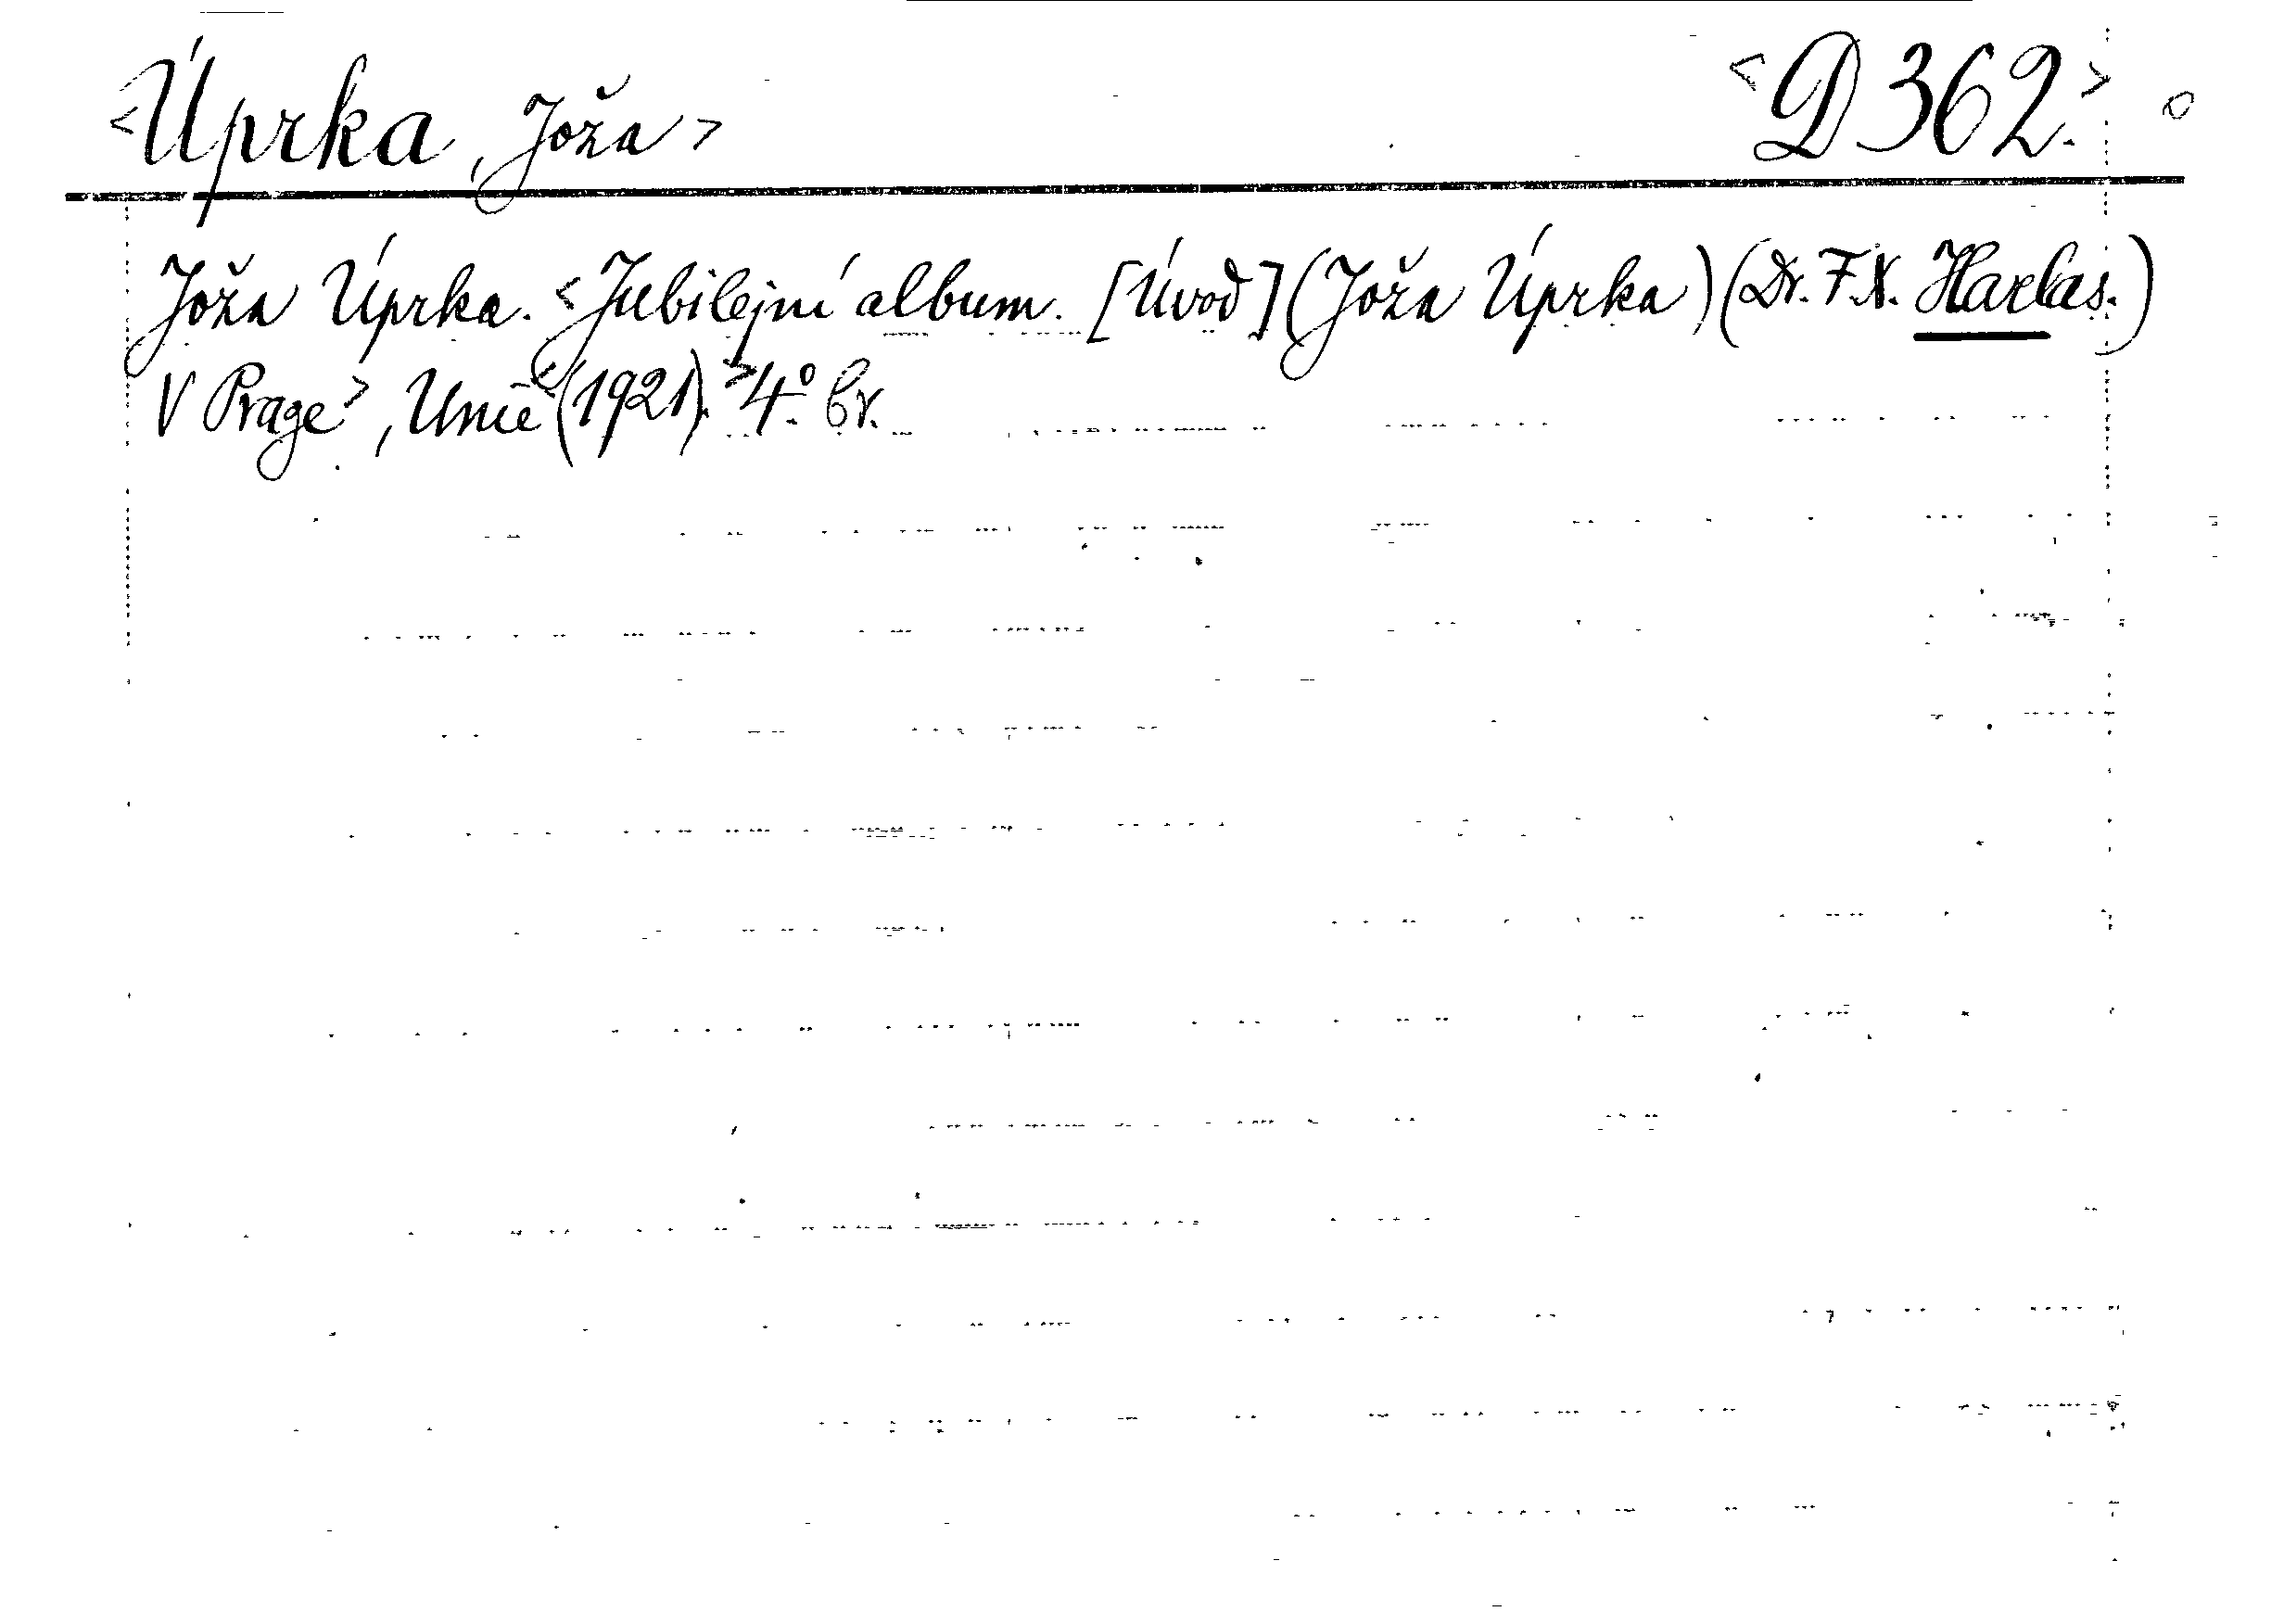 <Úprka, Joža> <D 362.>
Joža Úprka. <Jubilejní album. [Úvod] (Joža Úprka) (Dr. F.X. Harlas.)
V Praze>, Unie (1921).> 4.° br.